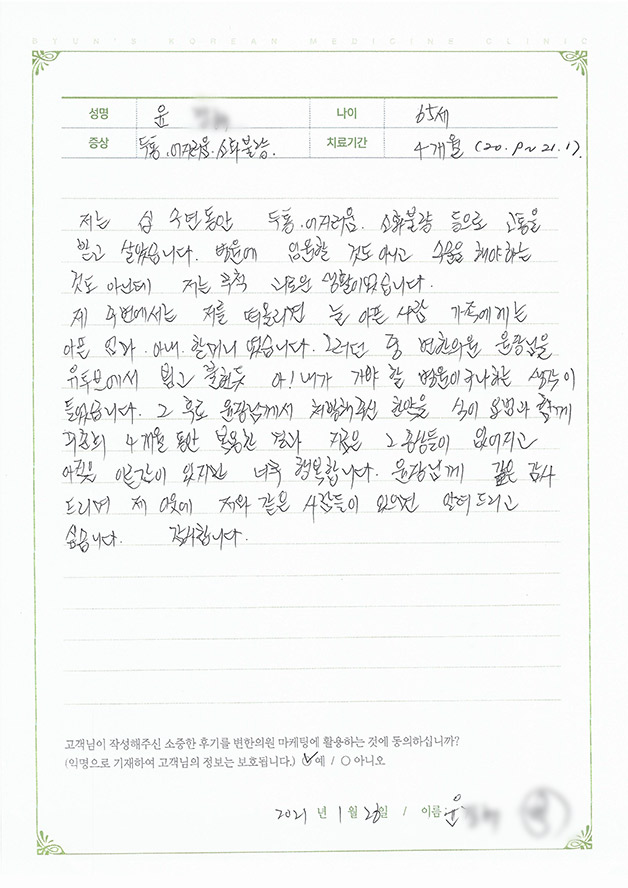 BYUN'S KOREAN MEDICINE CLINIC
성명 윤 나이 65세
증상 두통.어지러움.소화불량. 치료기간 4개월 (20. 9 ~ 21. 1).
저는 십 수년동안 두통.어지러움. 소화불량 등으로 고통을
받고 살았습니다. 병원에 입원할 것도 아니고 수술을 해야하는
것도 아닌데 저는 무척 괴로운 생활이었습니다.
제 주변에서는 저를 떠올리면 늘 아픈 사람 가족에게는
아픈 엄마. 아내. 할머니 였습니다. 그러던 중 변한의원 원장님을
유투브에서 뵙고 아! 내가 가야 할 병원이구나하는 생각이
들었습니다. 그 후로 원장님께서 처방해주신 한약을 식이 요법과 함께
4개월 동안 복용한 결과 지금은 그 증상들이 없어지고
아직은 있지만 너무 행복합니다. 원장님께 깊은 감사
드리며 제 이웃에 저와 같은 사람들이 있으면 알려 드리고
싶습니다. 감사합니다.
고객님이 작성해주신 소중한 후기를 변한의원 마케팅에 활용하는 것에 동의하십니까?
(익명으로 기재하여 고객님의 정보는 보호됩니다.) 예 / ○ 아니오
2021 년 1 월 26일 / 이름: 윤